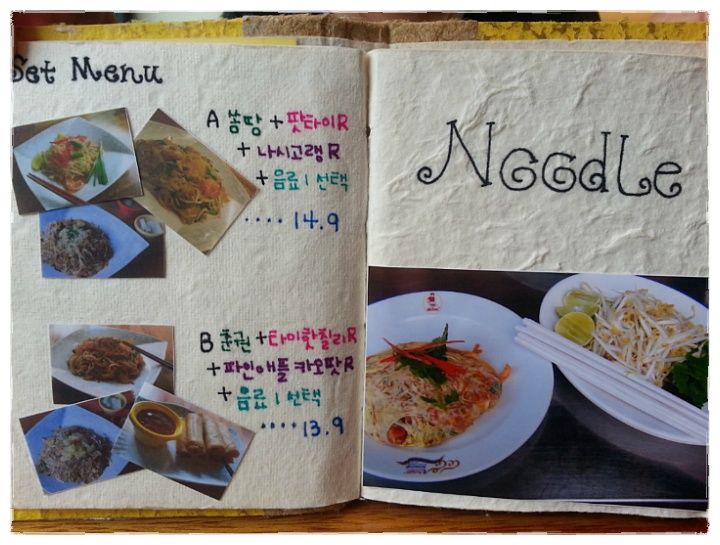 Set Menu
A 쏨땅 + 팟타이R
+ 나시고랭 R
+ 음료 1 선택
.... 14.9
B 춘권 + 타이핫칠리R
+ 파인애플 카오팟R
+ 음료 1 선택
.... 13.9
Noodle